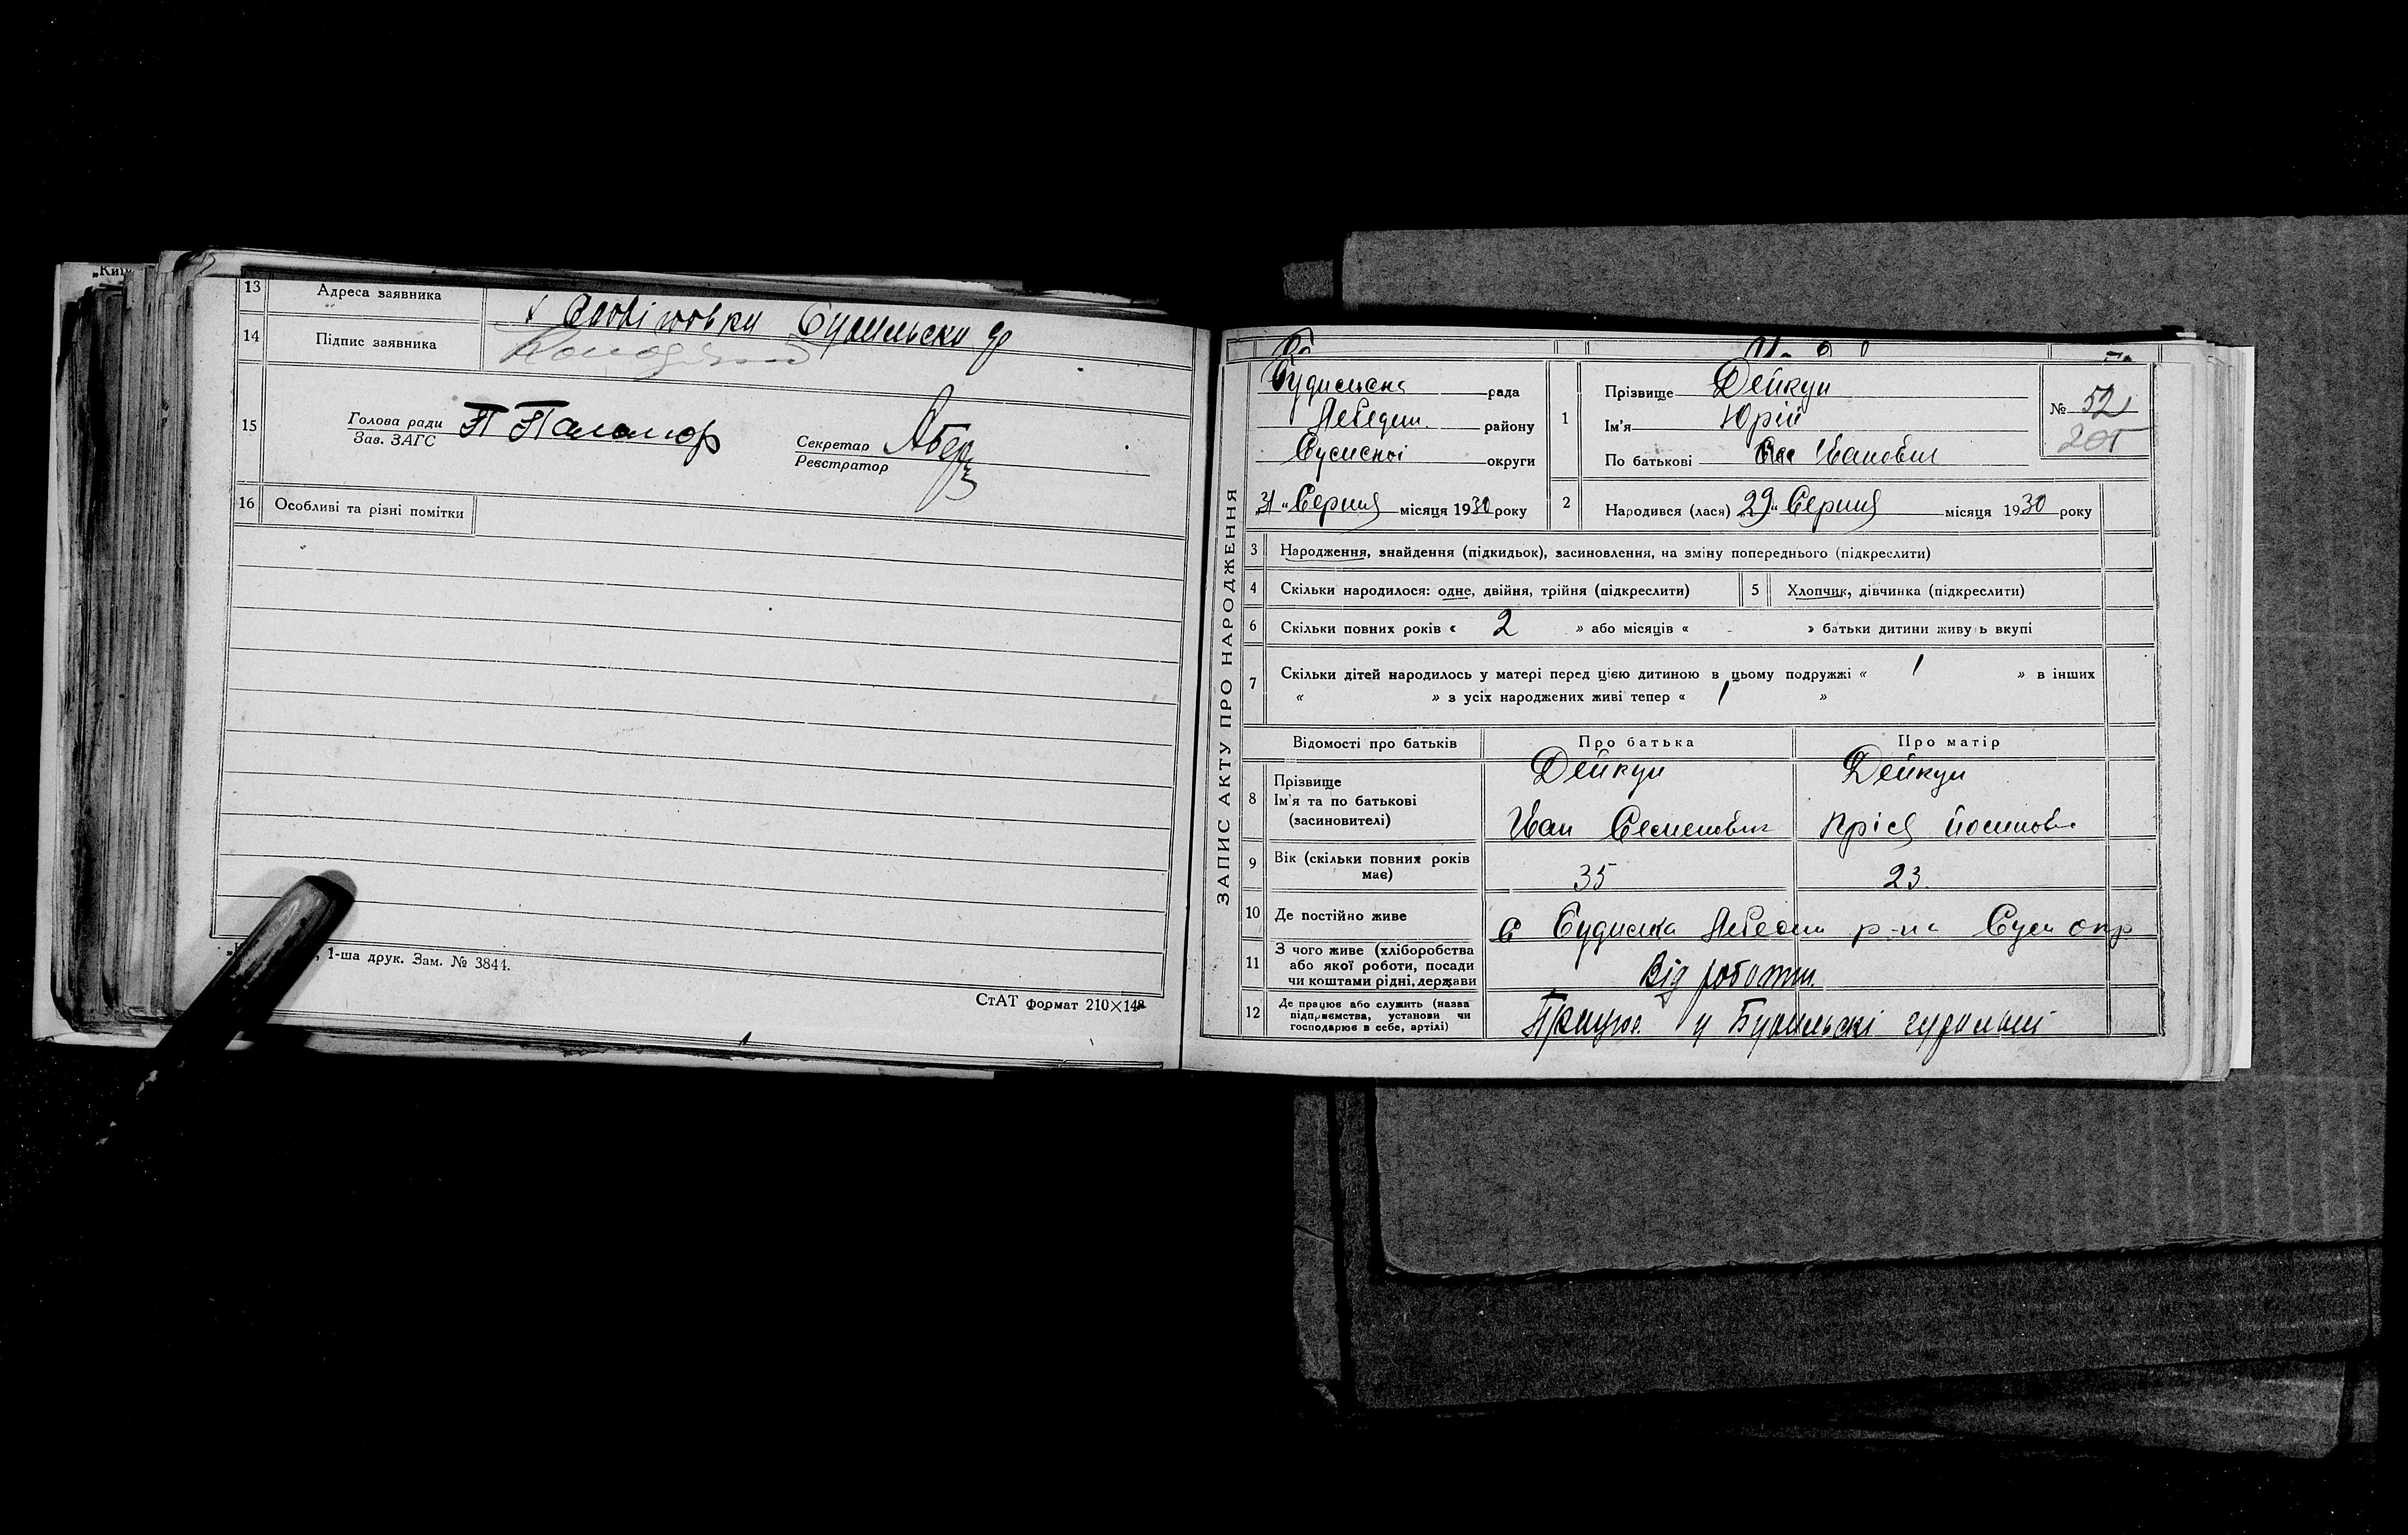 13 Адреса заявника
14 Підпис заявника
15 Голова ради
Зав. ЗАГС
Секретар
Реєстратор
16 Особливі та різні помітки
1-ша друк. Зам. № 3844.
СтАТ формат 210×148
ЗАПИС АКТУ ПРО НАРОДЖЕННЯ
рада
Лебедин. району
Сумської округи
„31“ Серпня місяця 1930 року
1 Прізвище Дейкун
Ім'я Юрій
По батькові Іванович
№ 52
205
2 Народився (лася) „29“ Серпня місяця 1930 року
3 Народження, знайдення (підкидьок), засиновлення, на зміну попереднього (підкреслити)
4 Скільки народилося: одне, двійня, трійня (підкреслити)
5 Хлопчик, дівчинка (підкреслити)
6 Скільки повних років « 2 » або місяців « - » батьки дитини живуть вкупі
7 Скільки дітей народилось у матері перед цією дитиною в цьому подружжі « 1 » в інших
« » з усіх народжених живі тепер « 1 »
Відомості про батьків Про батька Про матір
8 Прізвище Дейкун Дейкун
Ім'я та по батькові
(засиновителі) Іван Семенович Йосипов
9 Вік (скільки повних років має) 35 23
10 Де постійно живе с Лебедин р-на Сум окр
11 З чого живе (хліборобства
або якої роботи, посади
чи коштами рідні, держави Від роботи
12 Де працює або служить (назва
підприємства, установи чи
господарює в себе, артілі) Працює у